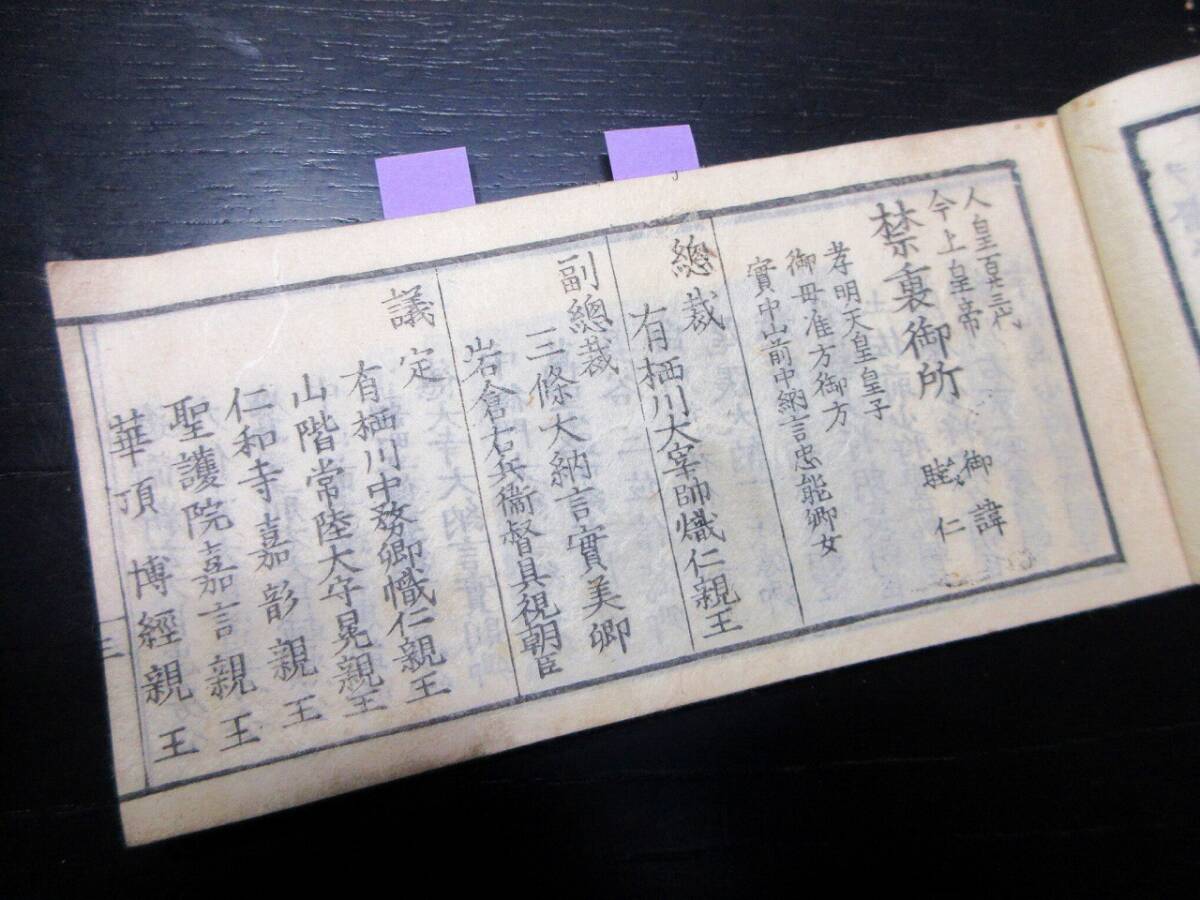 人皇百廿三代
今上皇帝
御諱
睦仁
禁裏御所
孝明天皇皇子
御母准后御方
實中山前中納言忠能卿女
總裁
有栖川大宰帥熾仁親王
副總裁
三條大納言實美卿
岩倉右兵衞督具視朝臣
議定
有栖川中務卿幟仁親王
山階常陸大守晃親王
仁和寺嘉彰親王
聖護院嘉言親王
華頂博經親王
三